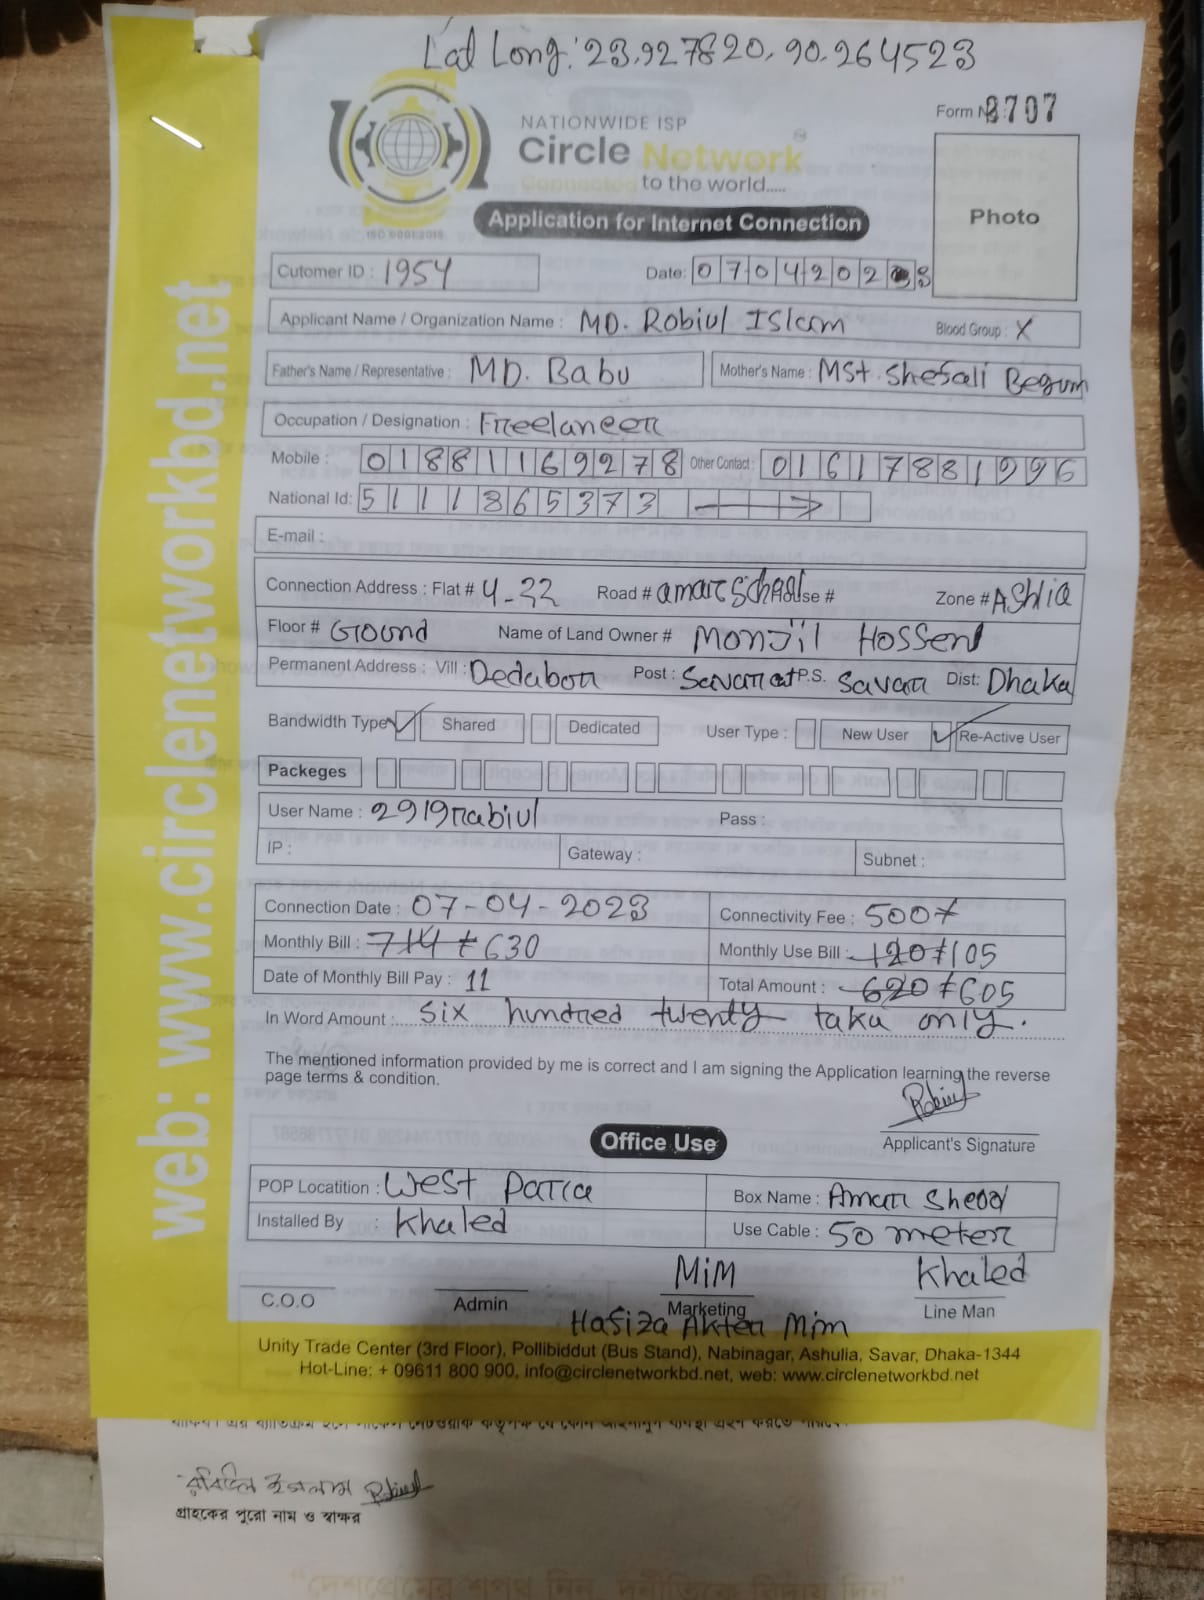 Lat Long: 23.927820, 90.264523
Form No 8707
NATIONWIDE ISP
Circle Network
Connected to the world.....
ISO 9001:2015
Photo
Application for Internet Connection
Cutomer ID : 1954
Date: 07042023
Applicant Name / Organization Name : MD. Robiul Islam Blood Group : X
Father's Name / Representative : MD. Babu Mother's Name : MSt. Shefali Begum
Occupation / Designation : Freelancer
Mobile : 01881169278 Other Contact : 01617881996
National Id: 5111865373
E-mail :
Connection Address : Flat # 4-22 Road # amar School se # Zone # AShlia
Floor # Ground Name of Land Owner # Monjil Hossen
Permanent Address : Vill : Dedabor Post : Savar P.S. Savar Dist: Dhaka
Bandwidth Type ✓ Shared Dedicated User Type : New User ✓ Re-Active User
Packeges
User Name : 2919rabiul Pass :
IP : Gateway : Subnet :
Connection Date : 07-04-2023 Connectivity Fee : 500/
Monthly Bill : 714 630 Monthly Use Bill : 120 105
Date of Monthly Bill Pay : 11 Total Amount : 620 605
In Word Amount : Six hundred twenty taka only.
The mentioned information provided by me is correct and I am signing the Application learning the reverse
page terms & condition.
Robiul
Applicant's Signature
Office Use
POP Locatition : West Para Box Name : Amar Shebd
Installed By : Khaled Use Cable : 50 meter
MiM Khaled
C.O.O Admin Marketing Line Man
Hafiza Akter Mim
Unity Trade Center (3rd Floor), Pollibiddut (Bus Stand), Nabinagar, Ashulia, Savar, Dhaka-1344
Hot-Line: + 09611 800 900, info@circlenetworkbd.net, web: www.circlenetworkbd.net
web: www.circlenetworkbd.net
রবিউল ইসলাম Robiul
গ্রাহকের পুরো নাম ও স্বাক্ষর
“দেশপ্রেমের শপথ নিন, দুর্নীতিকে বিদায় দিন”